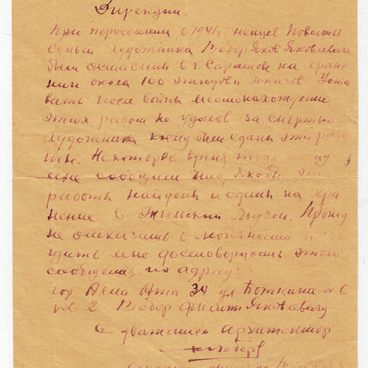 Дирекции.
При переселении в 1941г. немцев Поволжья
семьи художника Вебер Яков Яковлевича
были оставлены в г. Саратове на хране
нии около 100 этюдов и эскизов. Уста
вить после войны местонахождение
этих работ не удалось за смертью
художника кому были сданы эти рабо
ты. Некоторое время тому назад
мне сообщили что, якобы, эти
работы найдены и сданы на хра
нение в музей. Прошу
не отказать в любезности и
мне достоверность этого
сообщения по адресу:
гор Алма Ата 34 ул Боткина № 6
кв. 2 Вебер Яковлевичу
С уважением архитектор
Вебер